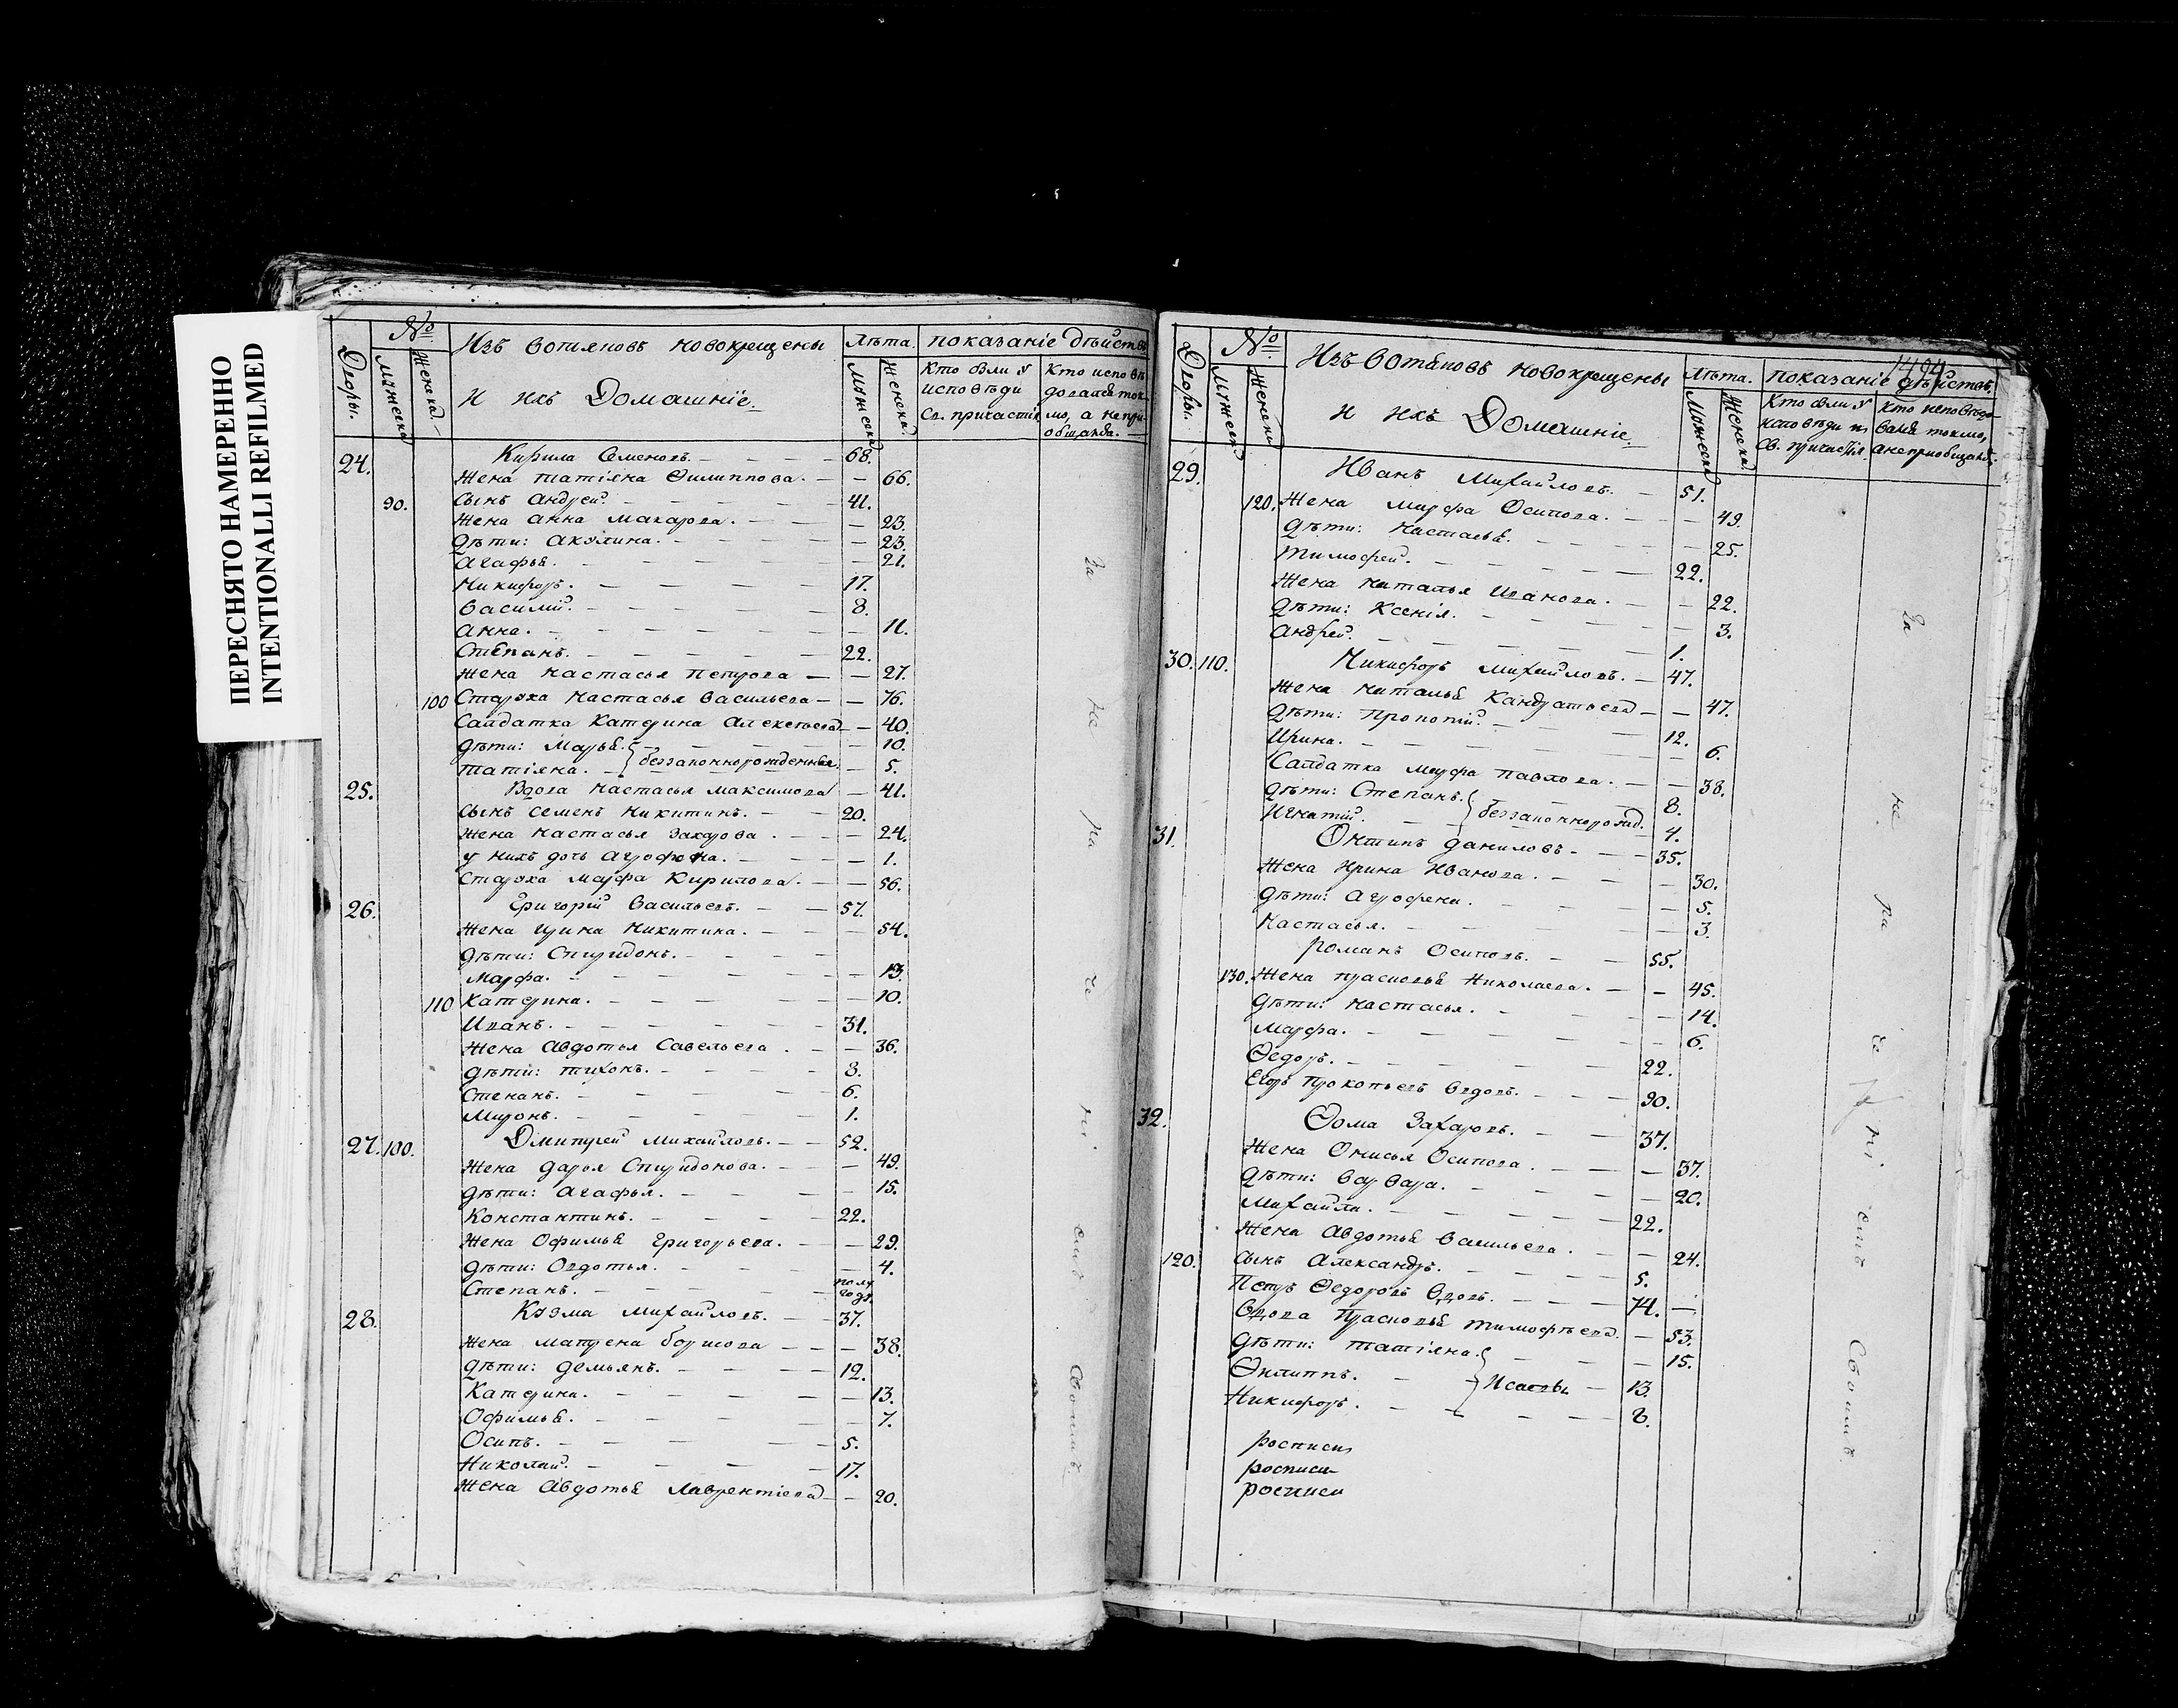 ПЕРЕСНЯТО НАМЕРЕННО
INTENTIONALLI REFILMED
Дворы.
№
Мужеска
Женска.
Изъ вотяковъ новокрещены
и ихъ Домашніе.
Лѣта.
Мужеска
Женска.
показаніе дѣйств
Кто был у исповѣди Св. причастія
Кто исповѣдовался токмо, а не приобщался.
24. Кирила Семеновъ. 68.
Жена Татіяна Филиппова. 66.
90. Сынъ Андрей. 41.
Жена Анна Макарова. 23.
Дѣти: Акулина. 23.
Агафья. 21.
Никифоръ. 17.
Василій. 8.
Анна. 11.
Степанъ. 22.
Жена Настасья Петрова 27.
100 Старуха Настасья Васильева 76.
Салдатка Катерина Алексеева 40.
Дѣти: Марья. 10.
Татіяна. } беззаконнорожденные 5.
25. Вдова Настасья Максимова 41.
Сынъ Семенъ Никитинъ. 20.
Жена Настасья Захарова. 24.
у нихъ дочь Агрофена. 1.
Старуха Марфа Кирилова. 56.
26. Григорій Васильевъ. 57.
Жена Ирина Никитина. 54.
Дѣти: Спиридонъ.
Марфа. 13.
110 Катерина. 10.
Иванъ. 31.
Жена Авдотья Савельева. 36.
Дѣти: Тихонъ. 8.
Степанъ. 6.
Миронъ. 1.
27. 100. Дмитрей Михайловъ. 52.
Жена Дарья Спиридонова. 49.
Дѣти: Агафья. 15.
Константинъ. 22.
Жена Офимья Григорьева. 29.
Дѣти: Овдотья. 4.
Степанъ. полугода
28. Кузма Михайловъ. 37.
Жена Матрена Борисова 38.
Дѣти: Демьянъ. 12.
Катерина. 13.
Офимья. 7.
Осипъ. 5.
Николай. 17.
Жена Авдотья Лаврентіева 20.
За не ра че ні емъ Своимъ
1494
Дворы.
№
Мужеска
Женска
Изъ Вотяковъ новокрещены
и ихъ Домашніе.
Лѣта.
Мужеска
Женска
показаніе дѣйств.
Кто был у исповѣди и св. причастія.
Кто исповѣдовался токмо, а не приобщался.
29. Иванъ Михайловъ. 51.
120. Жена Марфа Осипова. 49.
Дѣти: Настасья. 25.
Тимофей. 22.
Жена Наталья Иванова. 22.
Дѣти: Ксенія. 3.
Андрей. 1.
30. 110. Никифоръ Михайловъ. 47.
Жена Наталья Кандратьева 47.
Дѣти: Прокопій. 12.
Ирина. 6.
Салдатка Марфа Павлова. 38.
Дѣти: Степанъ. 8.
Игнатій. } беззаконнорожд. 4.
31. Онтипъ Даниловъ. 35.
Жена Ирина Иванова. 30.
Дѣти: Агрофена. 5.
Настасья. 3.
Романъ Осиповъ. 55.
130. Жена Прасковья Николаева. 45.
Дѣти: Настасья. 14.
Марфа. 6.
Федоръ. 22.
Егоръ Прокопьевъ Вдовъ. 90.
32. Фома Захаровъ. 37.
Жена Онисья Осипова. 37.
Дѣти: Варвара. 20.
Михайла. 22.
Жена Авдотья Васильева. 24.
120. Сынъ Александръ. 5.
Петръ Федоровъ Вдовъ. 74.
Вдова Прасковья Тимофѣева. 53.
Дѣти: Татіяна. 15.
Филиппъ. } Исаевы 13.
Никифоръ. 8.
росписи
росписи
росписи
За не ра че ні емъ Своимъ